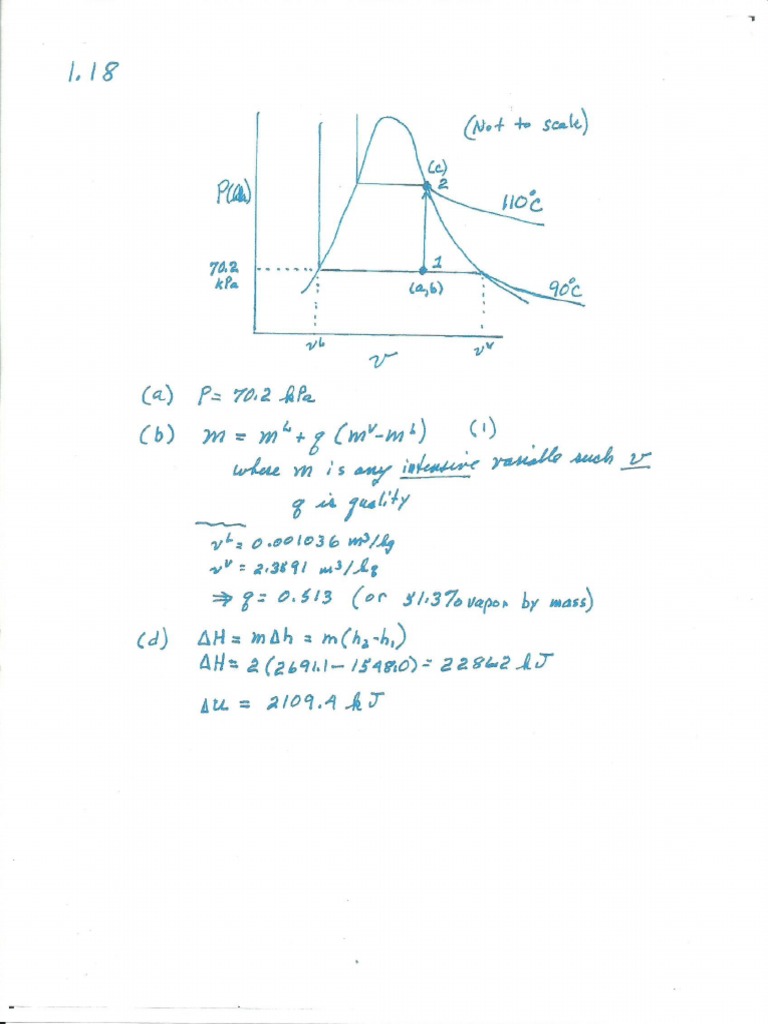 1.18
(Not to scale)
(c)
2
110°C
70.2
kPa
1
(a,b)
90°C
v^L
v
v^V
(a) P = 70.2 kPa
(b) m = m^L + q (m^V - m^L) (1)
where m is any intensive variable such v
q is quality
v^L = 0.001036 m³/kg
v^V = 2.3591 m³/kg
⇒ q = 0.513 (or 51.3% vapor by mass)
(d) ΔH = mΔh = m(h₂-h₁)
ΔH = 2(2691.1 - 1548.0) = 2286.2 kJ
ΔU = 2109.4 kJ